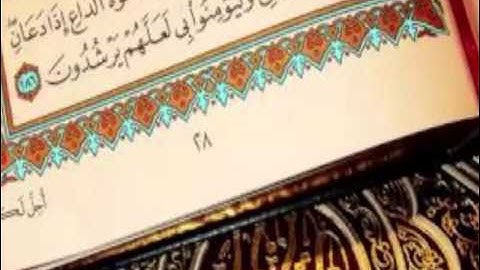 الدَّاعِ إِذَا دَعَانِ ۖ
وَلْيُؤْمِنُوا بِي لَعَلَّهُمْ يَرْشُدُونَ ١٨٦
٢٨
أُحِلَّ